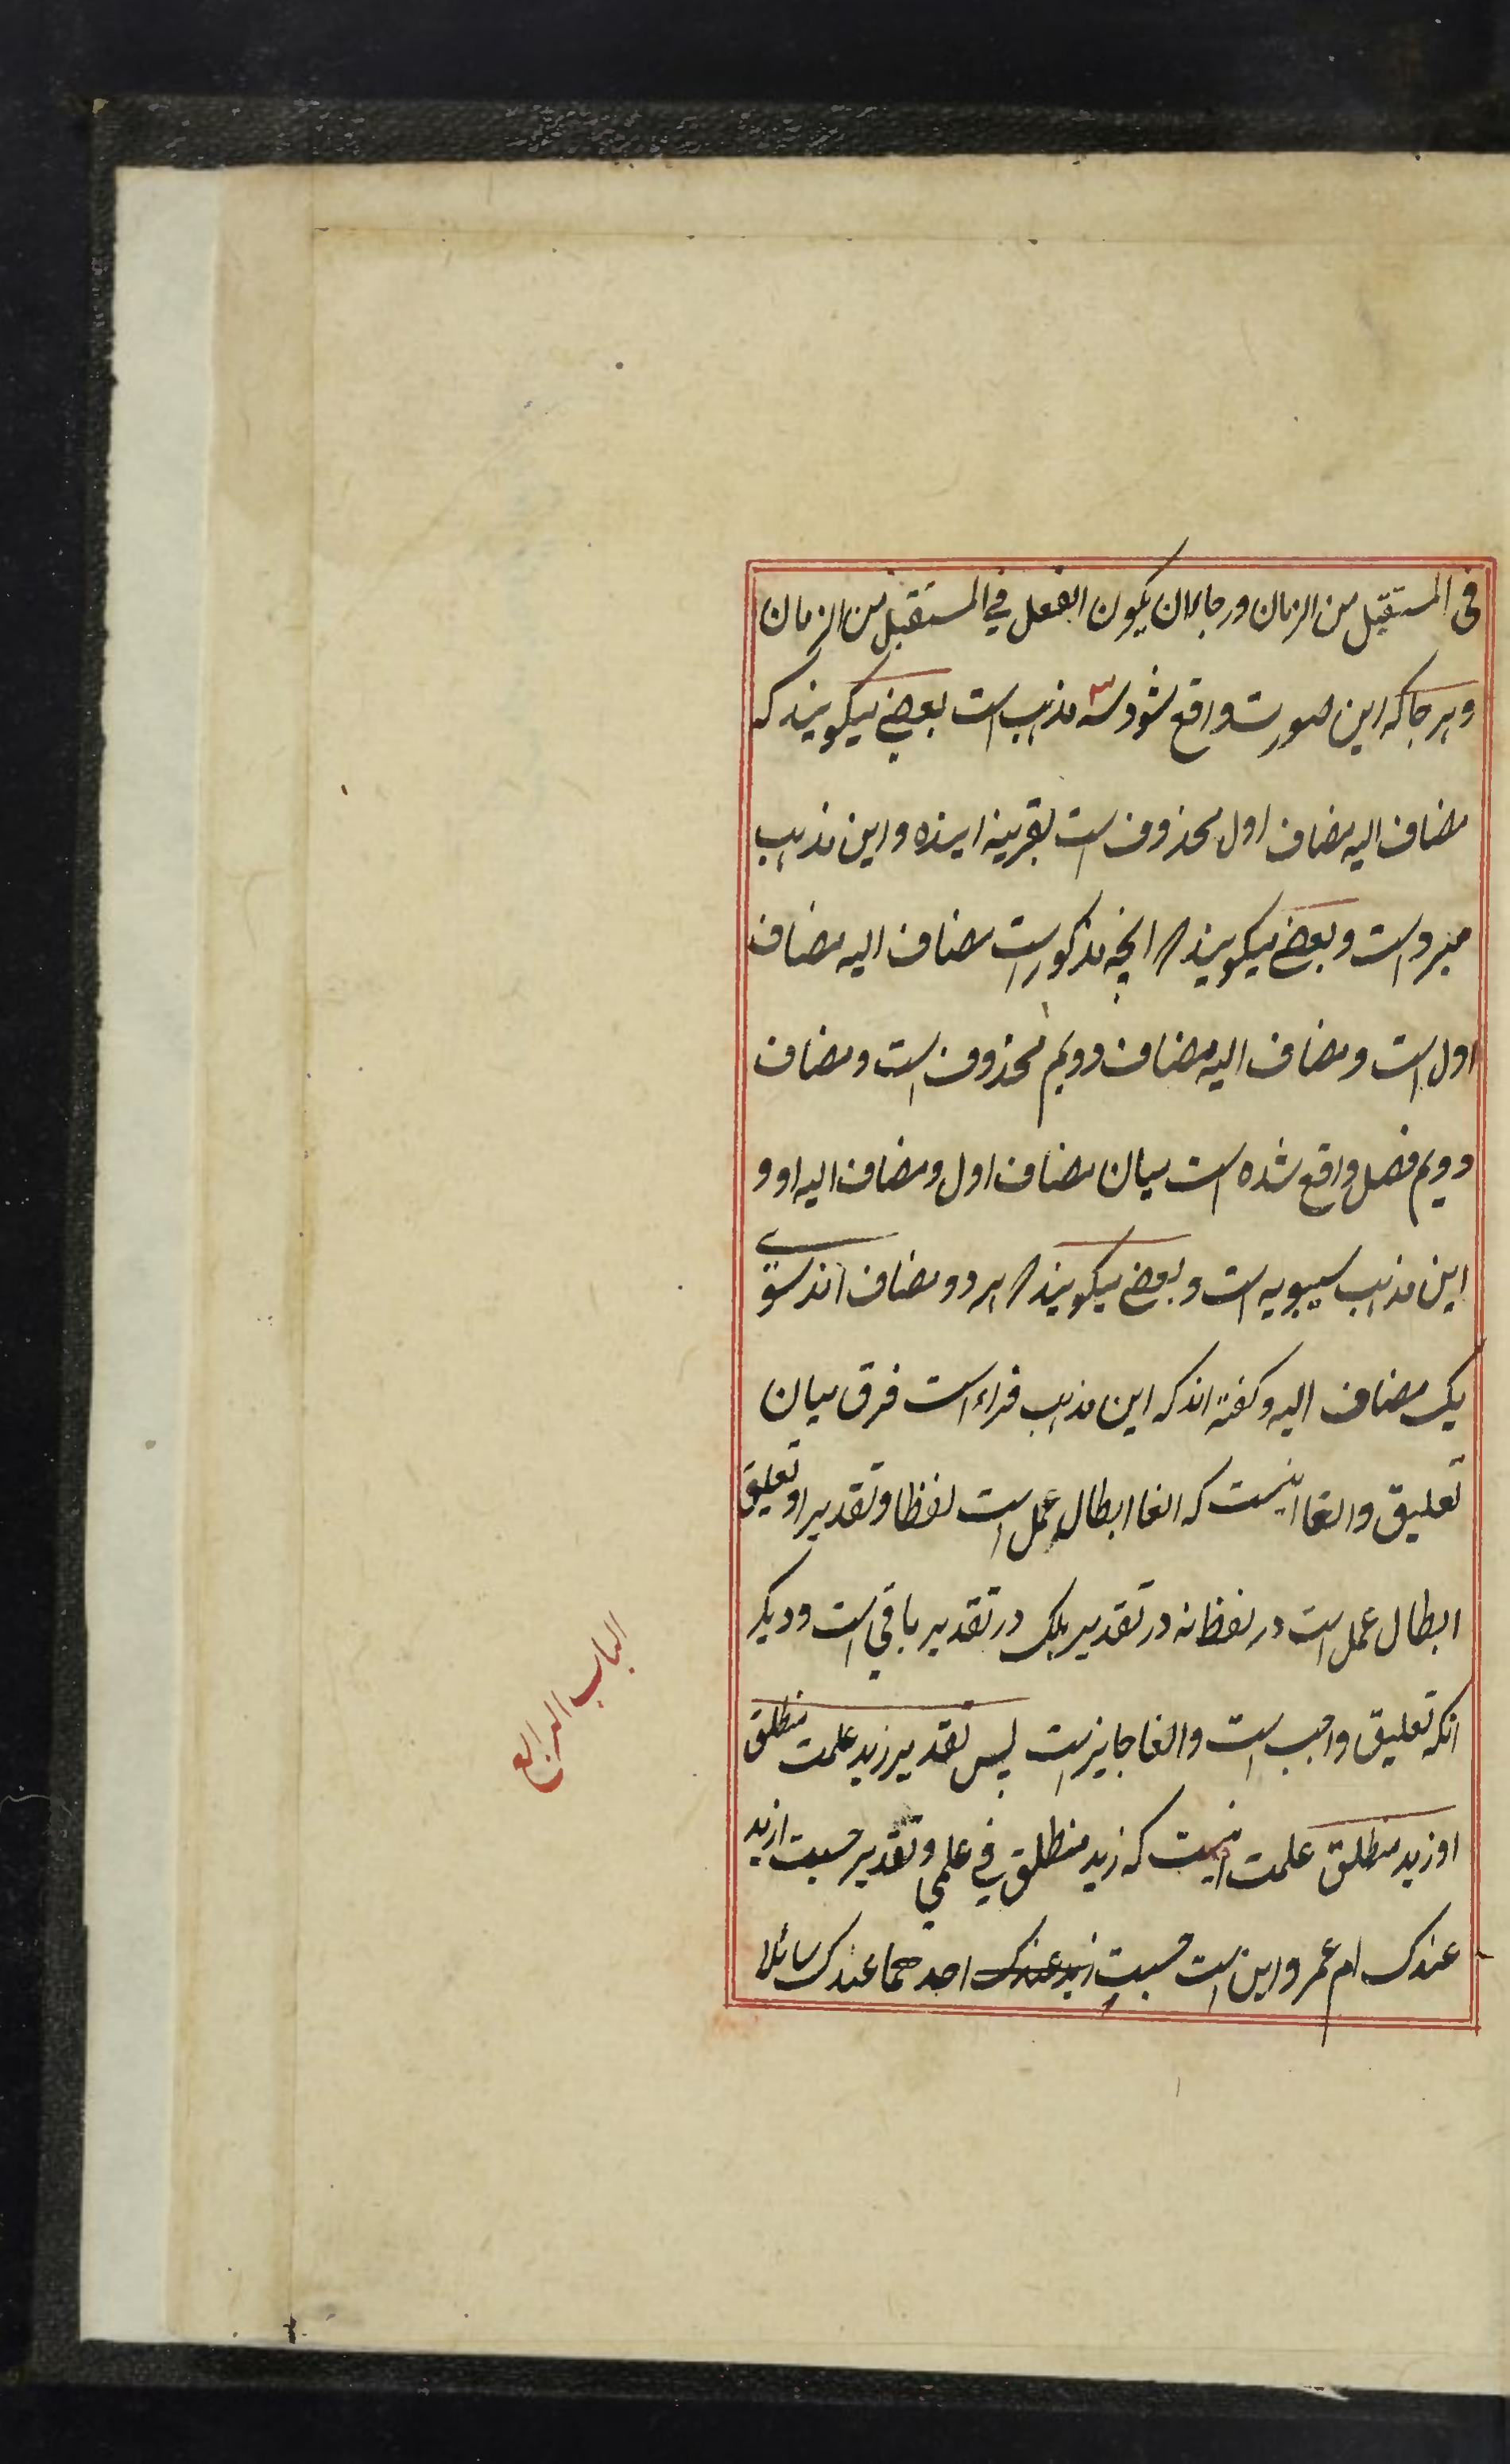 فی المستقبل من الزمان ورجاء ان یکون الفعل فی المستقبل من الزمان
وهر جا که این صورت واقع شود سه مذهب است بعضی میکویند که
مضاف الیه مضاف اول محذوف است بقرینه اینده واین مذهب
مبرد است وبعضی میکویند که انچه مذکور است مضاف الیه مضاف
اول است ومضاف الیه مضاف دویم محذوف است ومضاف
دویم فصل واقع شده است میان مضاف اول ومضاف الیه او و
این مذهب سیبویه است وبعضی میکویند که هر دو مضاف اند سوی
یک مضاف الیه وکفته اند که این مذهب فراء است فرق میان
تعلیق والغا اینست که الغا ابطال عمل است لفظا وتقدیرا وتعلیق
ابطال عمل است در لفظ نه در تقدیر بلک در تقدیر باقی است ودیکر
انکه تعلیق واجب است والغا جایز است پس تقدیر زید علمت منطلق
او زید منطلق علمت اینست که زید منطلق فی علمی وتقدیر حسبت ازید
عندک ام عمرو این است حسبت ازید عندک احدهما عندک سائلا
الباب الرابع